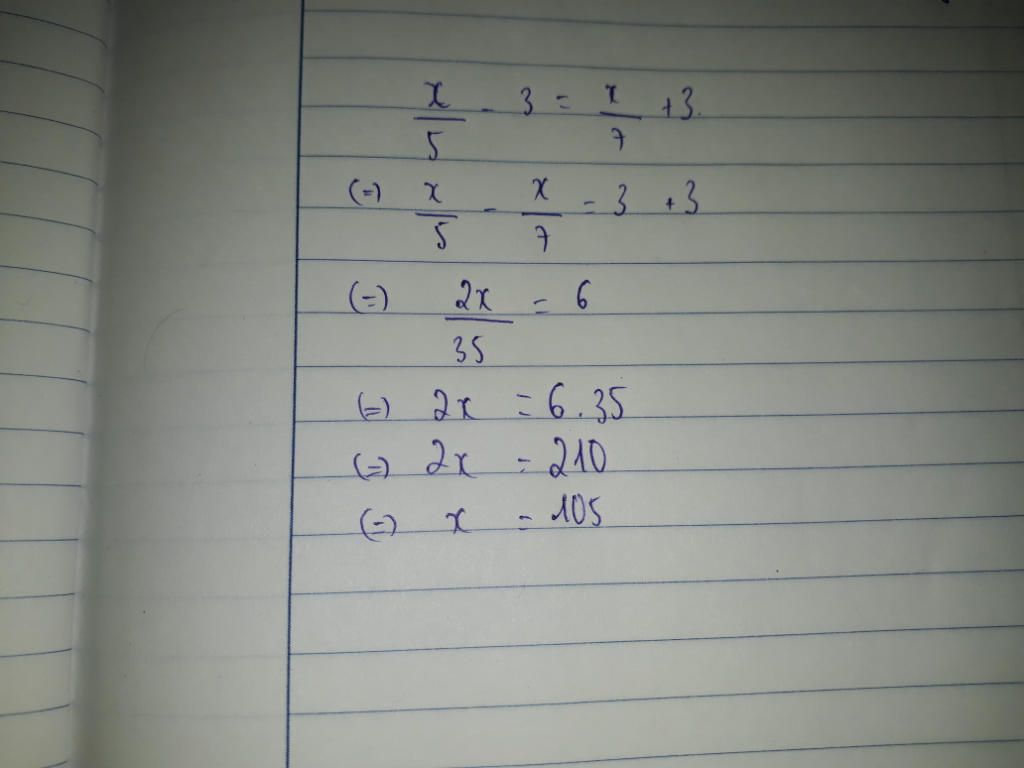 x/5 - 3 = x/7 + 3.
(=) x/5 - x/7 = 3 + 3
(=) 2x/35 = 6
(=) 2x = 6.35
(=) 2x = 210
(=) x = 105